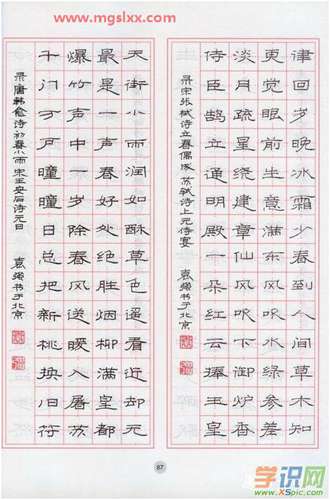 www.mgslxx.com
律回岁晚冰霜少春到人间草木知
便觉眼前生意满东风吹水绿参差
淡月疏星绕建章仙风吹下御炉香
侍臣鹄立通明殿一朵红云捧玉皇
录宋张栻诗立春偶成 苏轼诗上元侍宴 袁强书于北京
天街小雨润如酥草色遥看近却无
最是一年春好处绝胜烟柳满皇都
爆竹声中一岁除春风送暖入屠苏
千门万户曈曈日总把新桃换旧符
录唐韩愈诗初春小雨宋王安石诗元日 袁强书于北京
87
学识网
www.XSpic.com